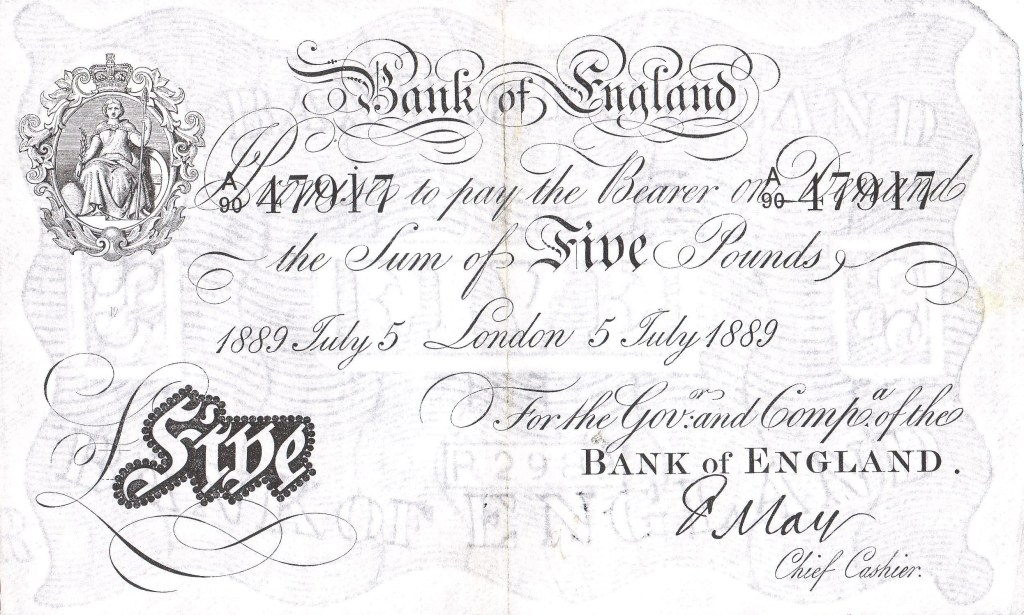 Bank of England
I Promise to pay the Bearer on Demand
A/90 47917 A/90 47917
the Sum of Five Pounds
1889 July 5 London 5 July 1889
For the Gov.or and Comp.a of the
BANK of ENGLAND.
£Five
F May
Chief Cashier.